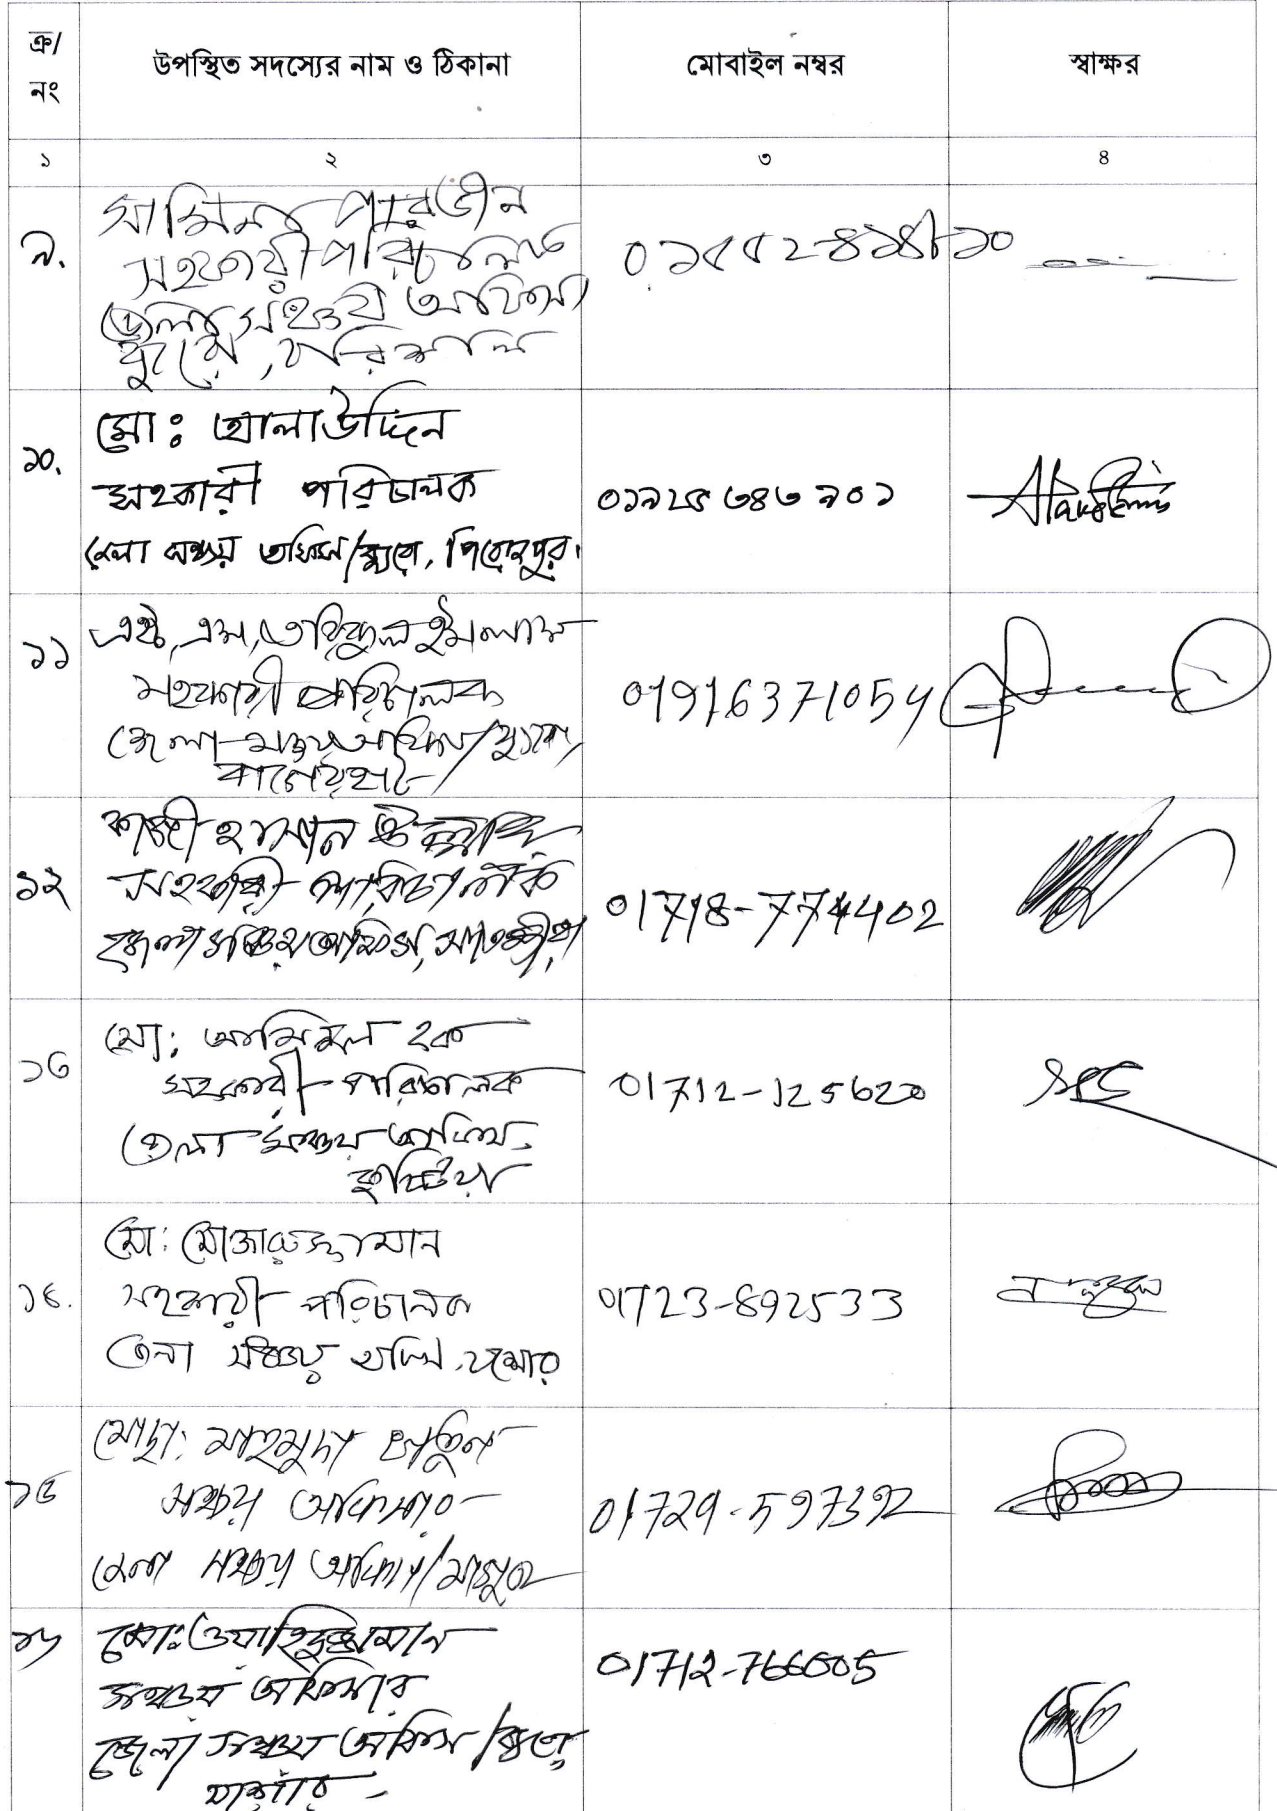 ক্র/
নং
উপস্থিত সদস্যের নাম ও ঠিকানা
মোবাইল নম্বর
স্বাক্ষর
১ ২ ৩ ৪
৯.
পারভীন
সহকারী পরিচালক
জেলা সঞ্চয় অফিস
ব্যুরো, বরিশাল
১০.
মো: আলাউদ্দিন
সহকারী পরিচালক
জেলা সঞ্চয় অফিস/ব্যুরো, পিরোজপুর।
০১৯২৫৩৪৩৯০১
১১
এইচ, এম, তরিকুল ইসলাম
সহকারী পরিচালক
জেলা সঞ্চয় অফিস/ব্যুরো,
বাগেরহাট
01916371054
১২
কাজী হাসান
সহকারী পরিচালক
জেলা সঞ্চয় অফিস, সাতক্ষীরা
01718-774402
১৩
মো: হক
সহকারী পরিচালক
জেলা সঞ্চয় অফিস,
কুষ্টিয়া
01712-125620
১৪.
মো:
সহকারী পরিচালক
জেলা সঞ্চয় অফিস, যশোর
01723-892533
১৫
মোছা: মাহমুদা খাতুন
সঞ্চয় অফিসার
জেলা সঞ্চয় অফিস/মাগুরা
01729-597392
১৬
মো: ওয়াহিদুজ্জামান
সঞ্চয় অফিসার
জেলা সঞ্চয় অফিস/ব্যুরো
01712-766605